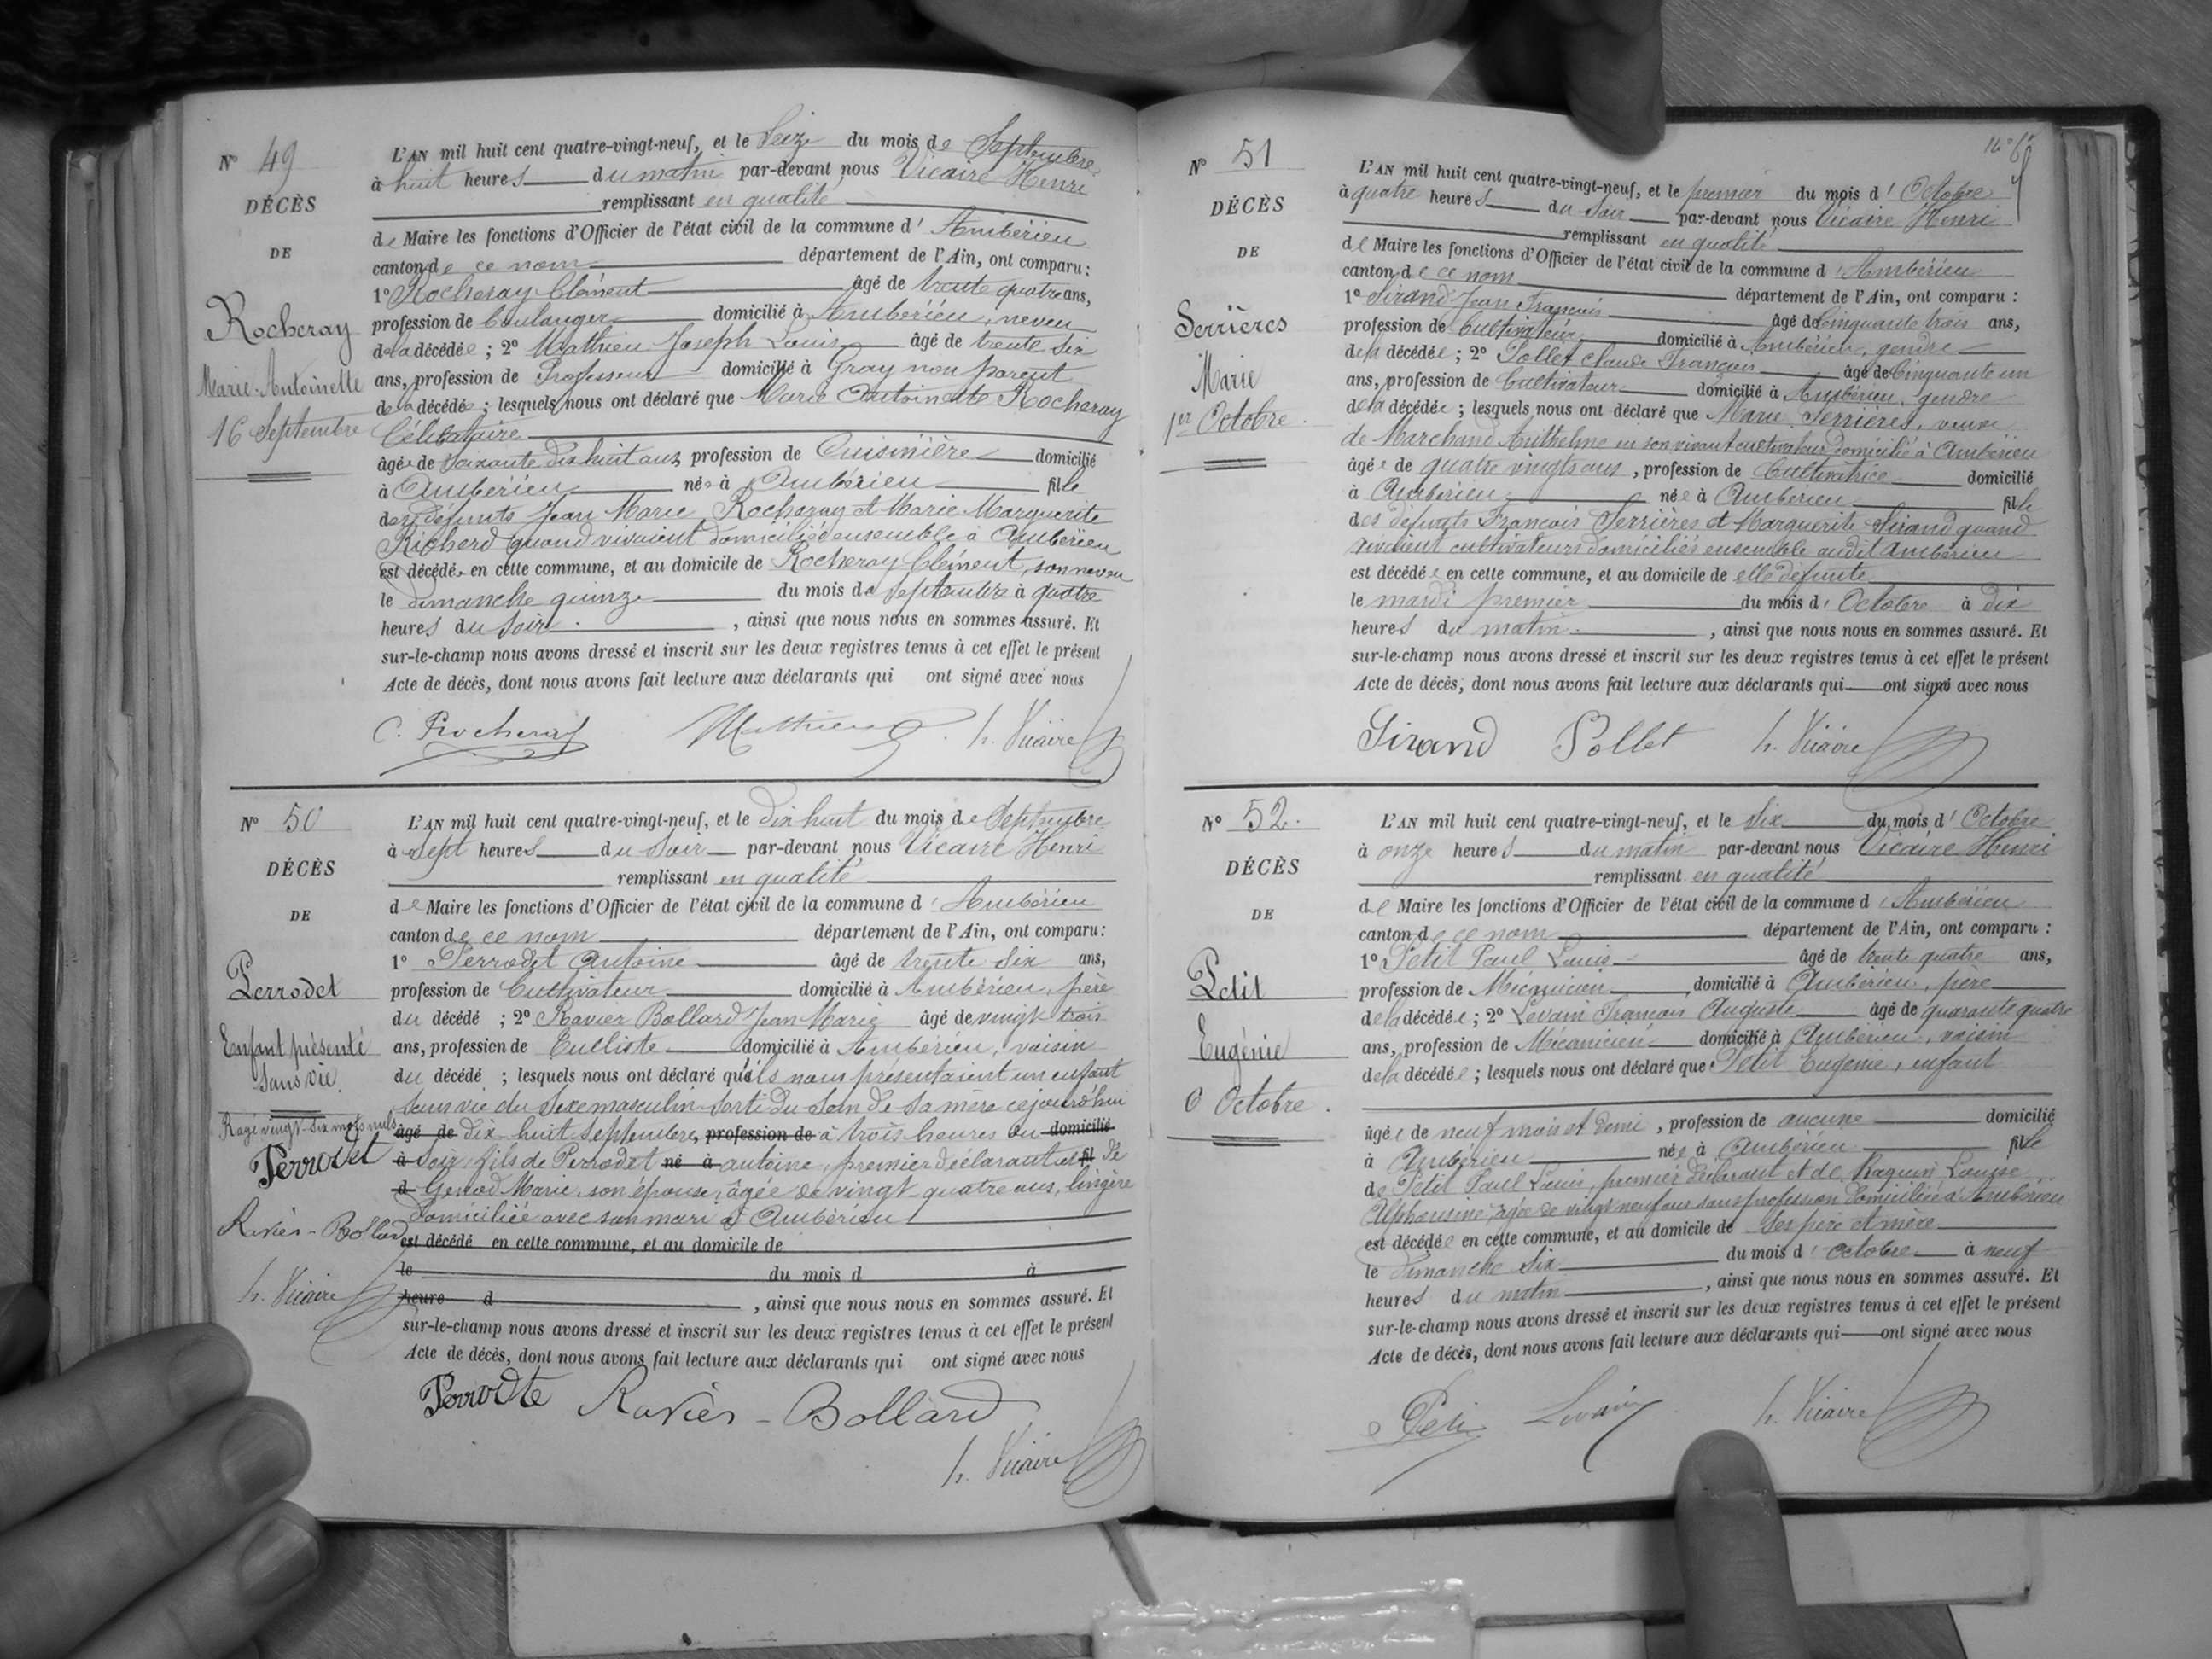 N° 49
DÉCÈS
DE
Rocheray
Marie-Antoinette
16 Septembre
L'AN mil huit cent quatre-vingt-neuf, et le Seize du mois de Septembre
à huit heures du matin par-devant nous Vicaire Henri
remplissant en qualité
de Maire les fonctions d'Officier de l'état civil de la commune d' Ambérieu
canton de ce nom département de l'Ain, ont comparu :
1° Rocheray Clément âgé de trente quatre ans,
profession de boulanger domicilié à Ambérieu, neveu
de la décédée ; 2° Mathieu Joseph Louis âgé de trente six
ans, profession de Professeur domicilié à Gray non parent
de la décédée ; lesquels nous ont déclaré que Marie Antoinette Rocheray
Célibataire
âgée de soixante dix huit ans, profession de Cuisinière domicilié
à Ambérieu née à Ambérieu fille
des défunts Jean Marie Rocheray et Marie Marguerite
Richerd quand vivaient domiciliés ensemble à Ambérieu
est décédée en cette commune, et au domicile de Rocheray Clément, son neveu
le dimanche quinze du mois de septembre à quatre
heures du soir , ainsi que nous nous en sommes assuré. Et
sur-le-champ nous avons dressé et inscrit sur les deux registres tenus à cet effet le présent
Acte de décès, dont nous avons fait lecture aux déclarants qui ont signé avec nous
C. Rocheray Mathieu h. Vicaire
N° 50
DÉCÈS
DE
Perrodet
Enfant présenté
sans vie.
Rayé vingt-six mots nuls
Perrodet
Ravier-Bollard
h. Vicaire
L'AN mil huit cent quatre-vingt-neuf, et le dix huit du mois de Septembre
à Sept heures du Soir par-devant nous Vicaire Henri
remplissant en qualité
de Maire les fonctions d'Officier de l'état civil de la commune d' Ambérieu
canton de ce nom département de l'Ain, ont comparu :
1° Perrodet Antoine âgé de trente six ans,
profession de Cultivateur domicilié à Ambérieu, père
du décédé ; 2° Ravier Bollard Jean Marie âgé de vingt trois
ans, profession de Tulliste domicilié à Ambérieu, voisin
du décédé ; lesquels nous ont déclaré qu'ils nous présentaient un enfant
sans vie du sexe masculin sorti du sein de sa mère cejourd'hui
âgé de dix huit septembre, profession de à trois heures du domicilié
à soir, fils de Perrodet né à antoine, premier déclarant et fil de
d Genod Marie, son épouse, âgée de vingt-quatre ans, lingère
domiciliée avec son mari à Ambérieu
est décédé en cette commune, et au domicile de
le du mois d à
heure d , ainsi que nous nous en sommes assuré. Et
sur-le-champ nous avons dressé et inscrit sur les deux registres tenus à cet effet le présent
Acte de décès, dont nous avons fait lecture aux déclarants qui ont signé avec nous
Perrodte Ravier-Bollard
h. Vicaire
N° 51
DÉCÈS
DE
Serrières
Marie
1er Octobre.
L'AN mil huit cent quatre-vingt-neuf, et le premier du mois d' Octobre
à quatre heures du soir par-devant nous Vicaire Henri
remplissant en qualité
de Maire les fonctions d'Officier de l'état civil de la commune d' Ambérieu
canton de ce nom département de l'Ain, ont comparu :
1° Sirand Jean François âgé de Cinquante trois ans,
profession de Cultivateur domicilié à Ambérieu, gendre
de la décédée ; 2° Pollet Claude François âgé de Cinquante un
ans, profession de Cultivateur domicilié à Ambérieu, gendre
de la décédée ; lesquels nous ont déclaré que Marie Serrières, veuve
de Marchand Anthelme en son vivant cultivateur domicilié à Ambérieu
âgée de quatre vingts ans, profession de Cultivatrice domicilié
à Ambérieu née à Ambérieu fille
des défunts François Serrières et Marguerite Sirand quand
vivaient cultivateurs domiciliés ensemble audit Ambérieu
est décédée en cette commune, et au domicile de elle défunte
le mardi premier du mois d' Octobre à dix
heures du matin , ainsi que nous nous en sommes assuré. Et
sur-le-champ nous avons dressé et inscrit sur les deux registres tenus à cet effet le présent
Acte de décès, dont nous avons fait lecture aux déclarants qui ont signé avec nous
Sirand Pollet h. Vicaire
N° 52.
DÉCÈS
DE
Petit
Eugénie
6 Octobre.
L'AN mil huit cent quatre-vingt-neuf, et le Six du mois d' Octobre
à onze heures du matin par-devant nous Vicaire Henri
remplissant en qualité
de Maire les fonctions d'Officier de l'état civil de la commune d' Ambérieu
canton de ce nom département de l'Ain, ont comparu :
1° Petit Paul Louis âgé de trente quatre ans,
profession de Mécanicien domicilié à Ambérieu, père
de la décédée ; 2° Levain François Auguste âgé de quarante quatre
ans, profession de Mécanicien domicilié à Ambérieu, voisin
de la décédée ; lesquels nous ont déclaré que Petit Eugénie, enfant
âgée de neuf mois et demi, profession de aucune domicilié
à Ambérieu née à Ambérieu fille
de Petit Paul Louis, premier déclarant et de Raguin Louise
Alphonsine, âgée de vingt neuf ans sans profession domiciliée à Ambérieu
est décédée en cette commune, et au domicile de ses père et mère
le dimanche six du mois d' octobre à neuf
heures du matin , ainsi que nous nous en sommes assuré. Et
sur-le-champ nous avons dressé et inscrit sur les deux registres tenus à cet effet le présent
Acte de décès, dont nous avons fait lecture aux déclarants qui ont signé avec nous
Petit Levain h. Vicaire